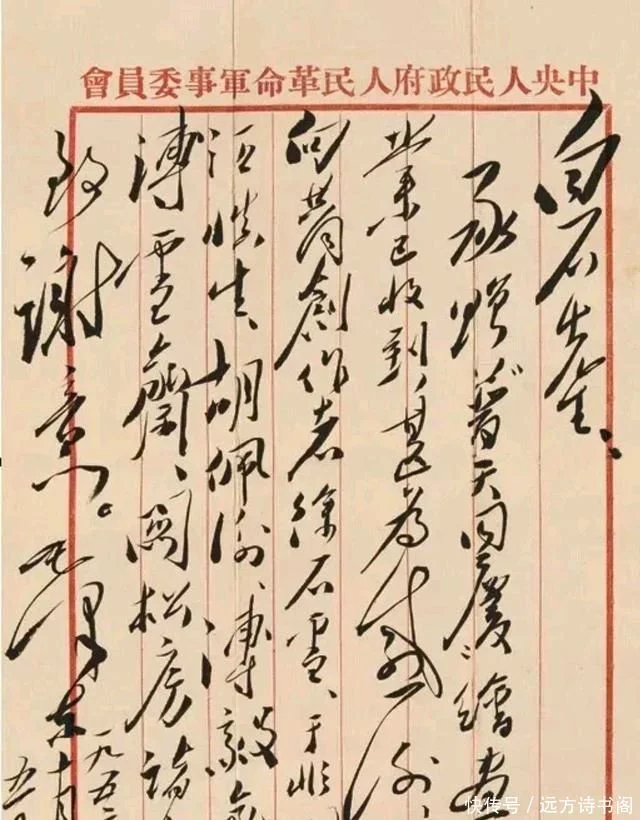 中央人民政府人民革命軍事委員會
白石先生、
承贈普天同慶繪畫
業已收到，甚為感謝、
向共同創作者徐石雪、于非
汪慎生、胡佩衡、溥毅齋
溥雪齋、關松房諸
致謝意。毛澤東
一九五
十月
五
快传号／远方诗书阁